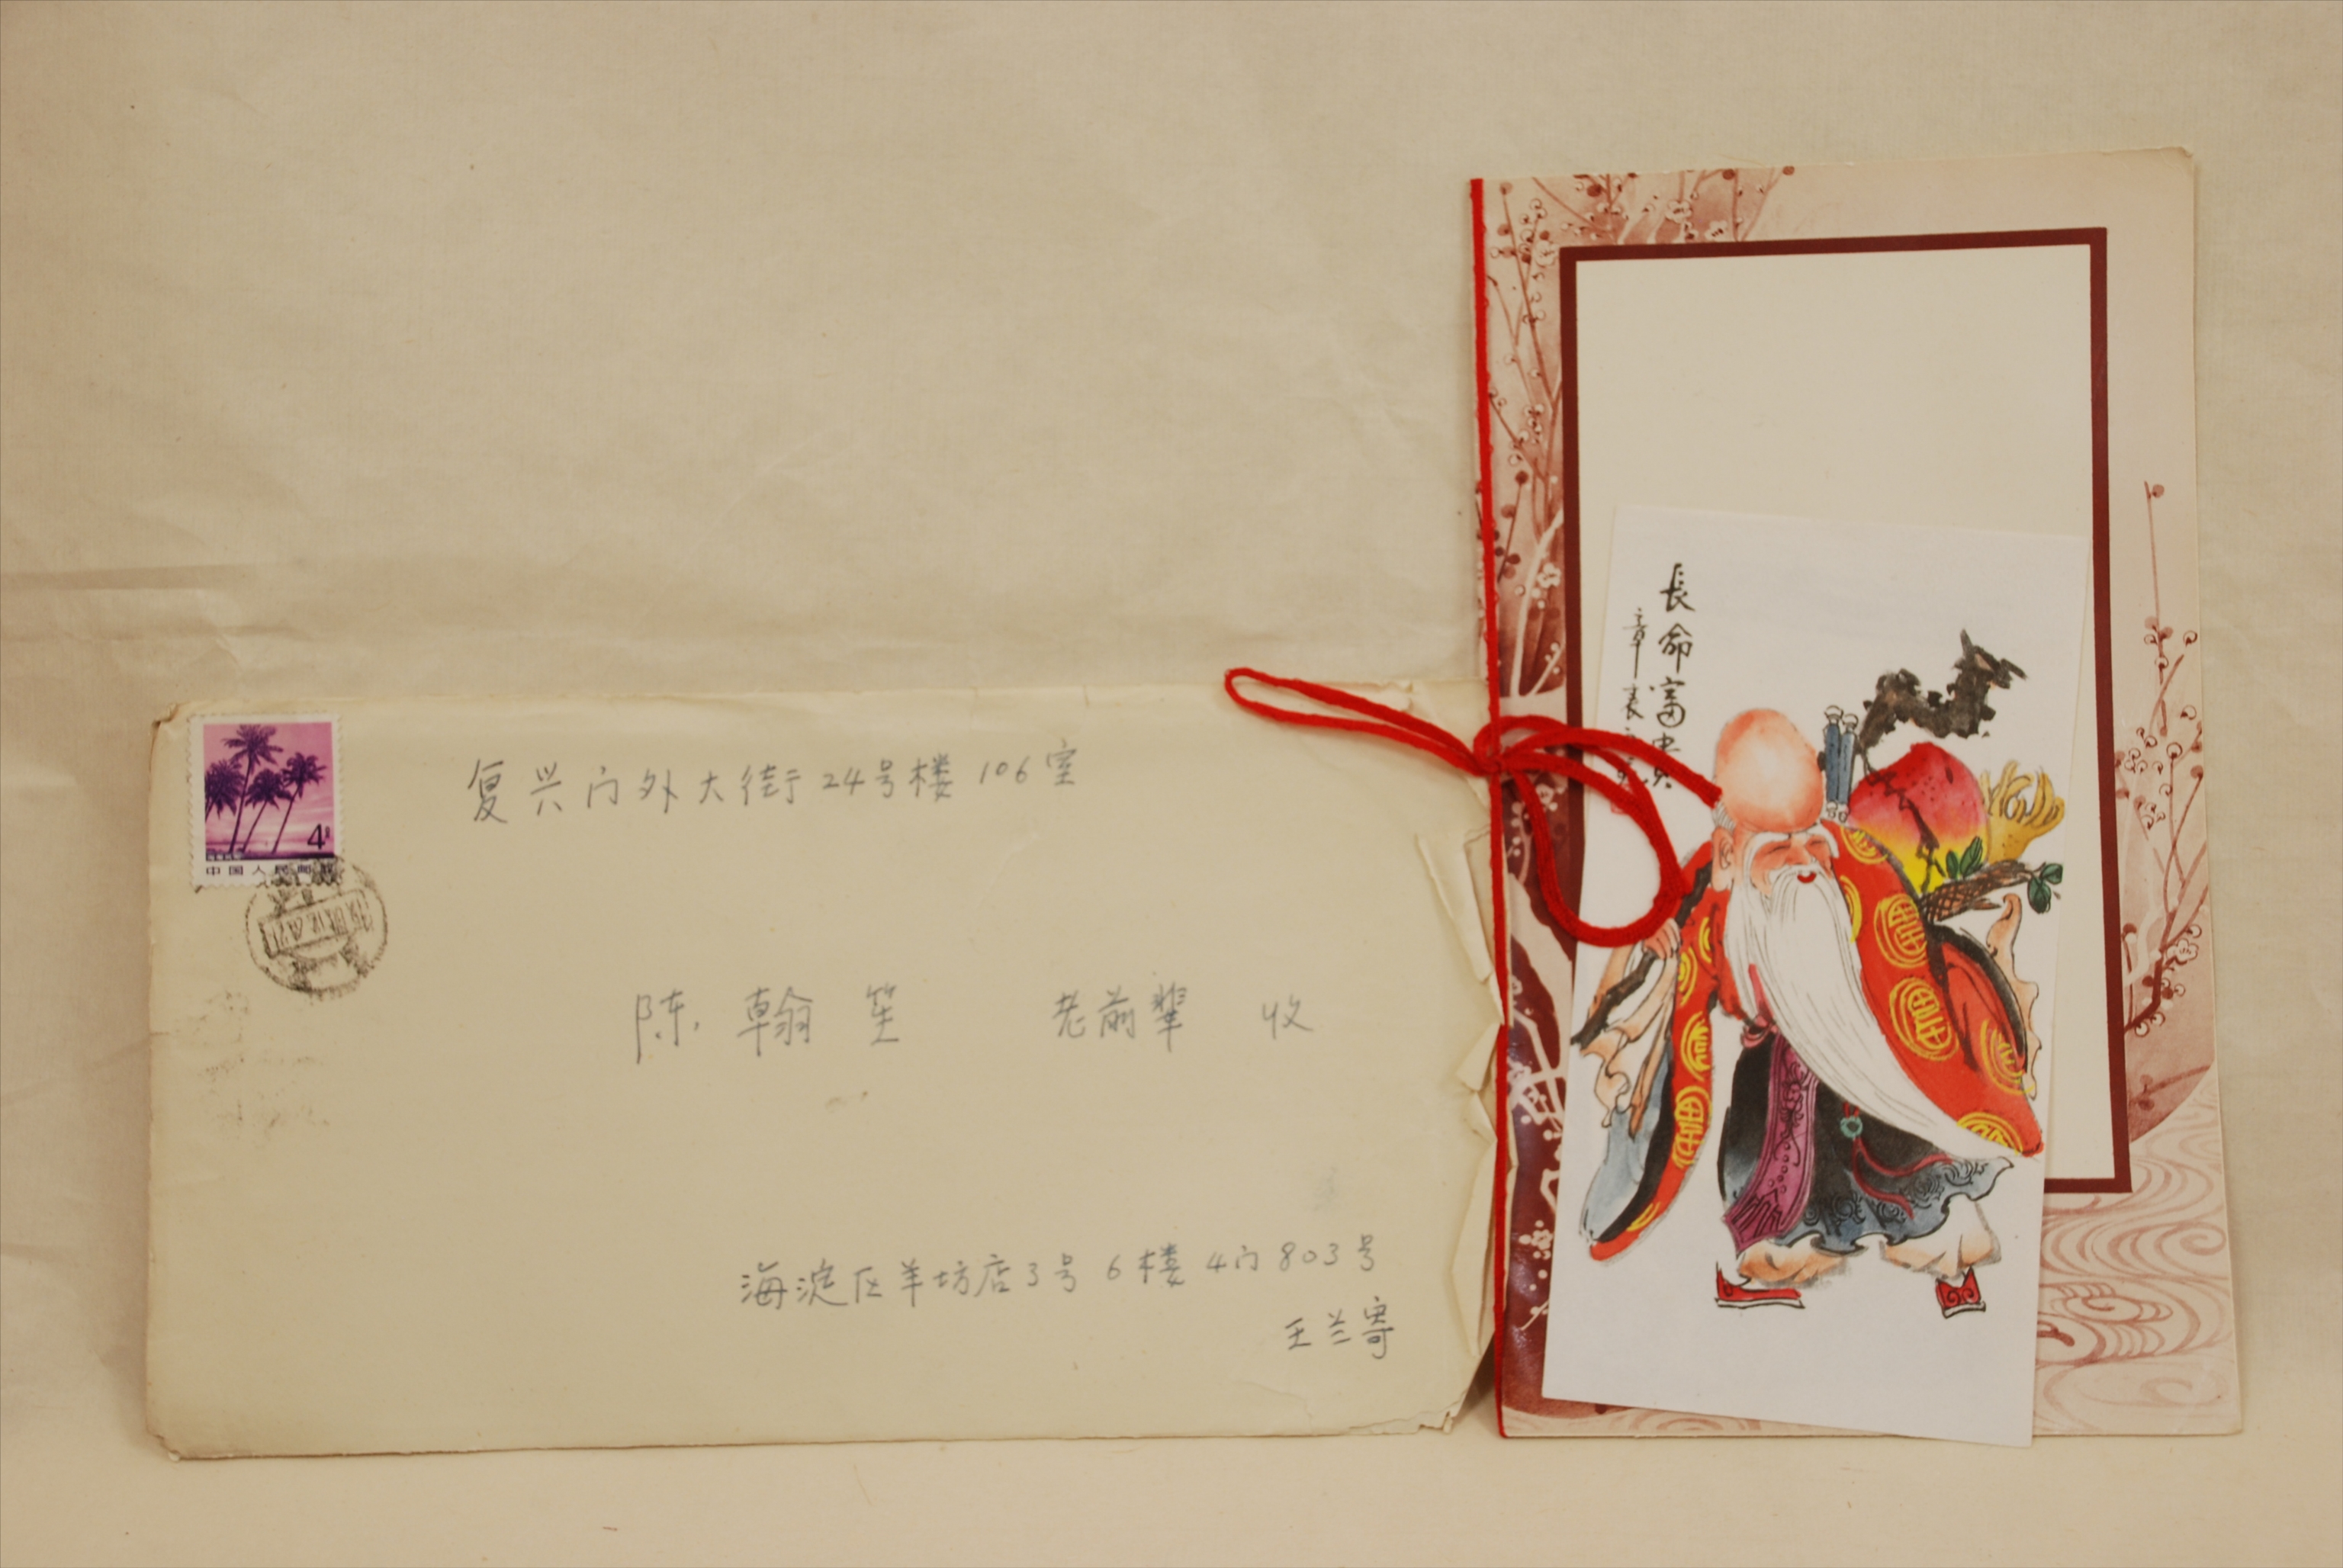 复兴门外大街24号楼106室
陈翰笙 老前辈 收
海淀区羊坊店3号6楼4门803号
王兰寄
4分
中国人民邮政
長命富貴